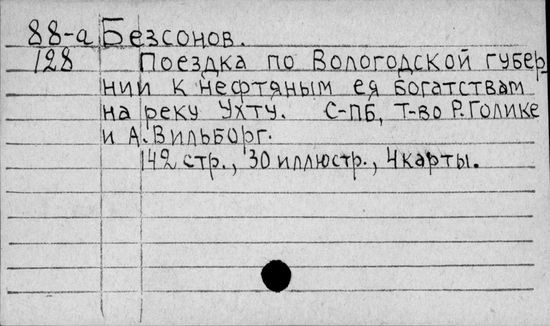 88-а Безсонов.
128 Поездка по Вологодской губер-
нии к нефтяным ея богатствам
на реку Ухту. С-ПБ, Т-во Р.Голике
и А.Вильборг.
142 стр., 30 иллюстр., 4 карты.